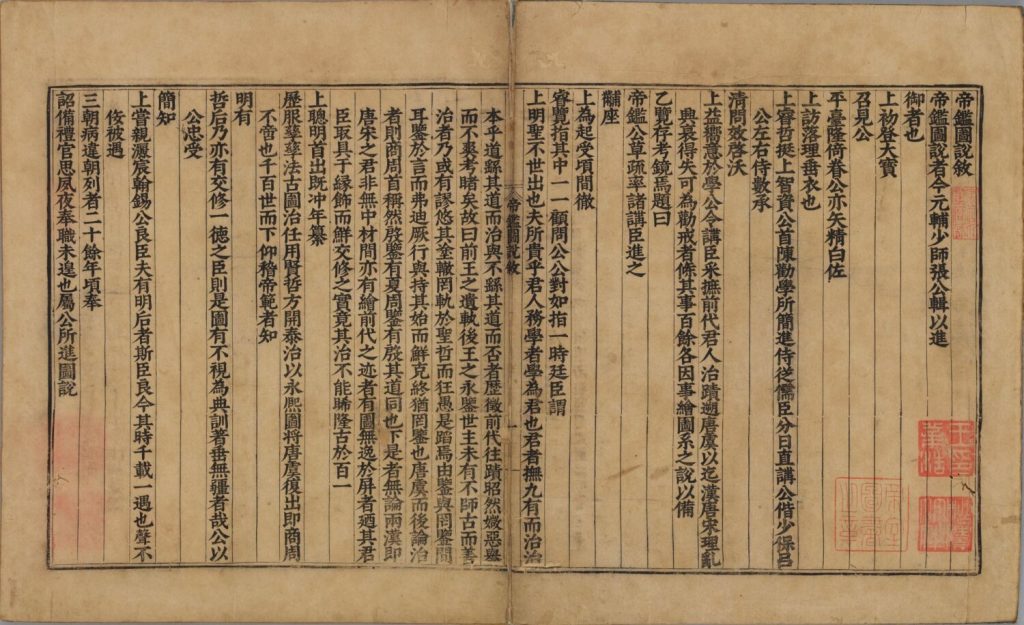 帝鑑圖說敘
帝鑑圖說者今元輔少師張公輯以進
御者也
上初登大寶
召見公
平臺隆倚眷公亦矢精白佐
上訪落理垂衣也
上睿哲挺上智資公首陳勸學所簡進侍從儒臣分日直講公偕少保呂
公左右侍數承
清問效啓沃
上益嚮意於學公令講臣采摭前代君人治蹟遡唐虞以迄漢唐宋理亂
興衰得失可為勸戒者條其事百餘各因事繪圖系之說以備
乙覽存考鏡焉題曰
帝鑑公草疏率諸講臣進之
黼座
上為起受頃間徹
睿覽指其中一一顧問公公對如指一時廷臣謂
上明聖不世出也夫所貴乎君人務學者學為君也君者撫九有而治治
帝鑑圖說敘
一
本乎道繇其道而治與不繇其道而否者歷徵前代往蹟昭然媺惡舉
而不爽考睹矣故曰前王之遺軌後王之永鑒世主未有不師古而善
治者乃或有謬悠其塗轍罔軌於聖哲而狂愚是蹈焉由鑒與罔鑒間
耳鑒於言而弗迪厥行與持其始而鮮克終猶罔鑒也唐虞而後論治
者則商周首稱然殷鑒有夏周鑒有殷其道同也下是者無論兩漢即
唐宋之君非無中材間亦有繪前代之迹者有圖無逸於屏者廼其君
臣取具于緣飾而鮮交修之實竟其治不能晞隆古於百一
上聰明首出既冲年纂
歷服孳孳法古圖治任用賢哲方開泰治以永熙圖將唐虞復出即商周
不啻也千百世而下仰稽帝範者知
明有
哲后乃亦有交修一德之臣則是圖有不視為典訓著垂無疆者哉公以
公忠受
簡知
上嘗親灑宸翰錫公良臣夫有明后者斯臣良今其時千載一遇也聲不
佞被遇
三朝病違朝列者二十餘年頃奉
詔備禮官思夙夜奉職未遑也屬公所進圖說